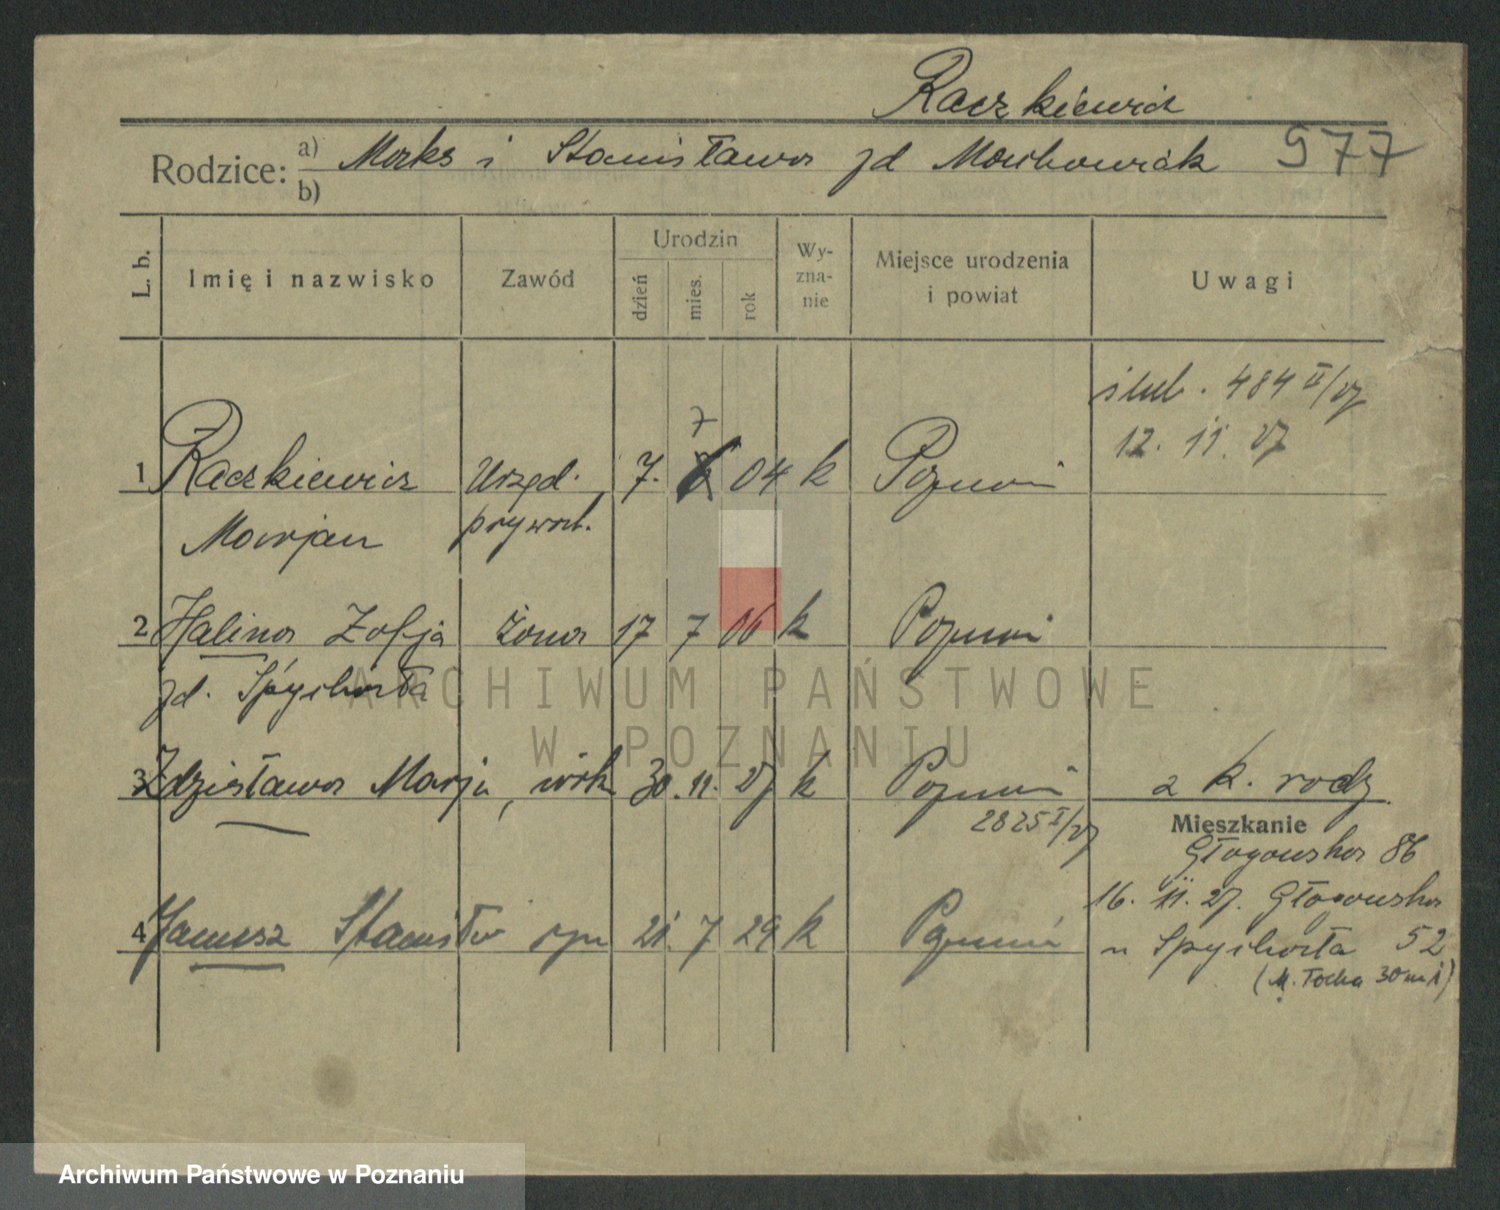 Raczkiewicz
Rodzice: a) Maks i Stanisława zd Maćkowiak 577
b)
L. b. Imię i nazwisko Zawód Urodzin dzień mies. rok Wyznanie Miejsce urodzenia i powiat Uwagi
ślub. 484 II/27
12. 11. 27
7
1 Raczkiewicz Urzęd. 7. 04 k Poznań
Marjan prywat.
2 Halina Zofja żona 17 7 06 k Poznań
zd. Spychała
3 Zdzisława Marja, córk 30. 11. 27 k Poznań 2 k. rodz
2825 I/27
Mieszkanie
Głogowska 86
16. 11. 27. Głogowska
4 Janusz Stanisław syn 21. 7 29 k Poznań u Spychała 52
ARCHIWUM PAŃSTWOWE
W POZNANIU
Archiwum Państwowe w Poznaniu